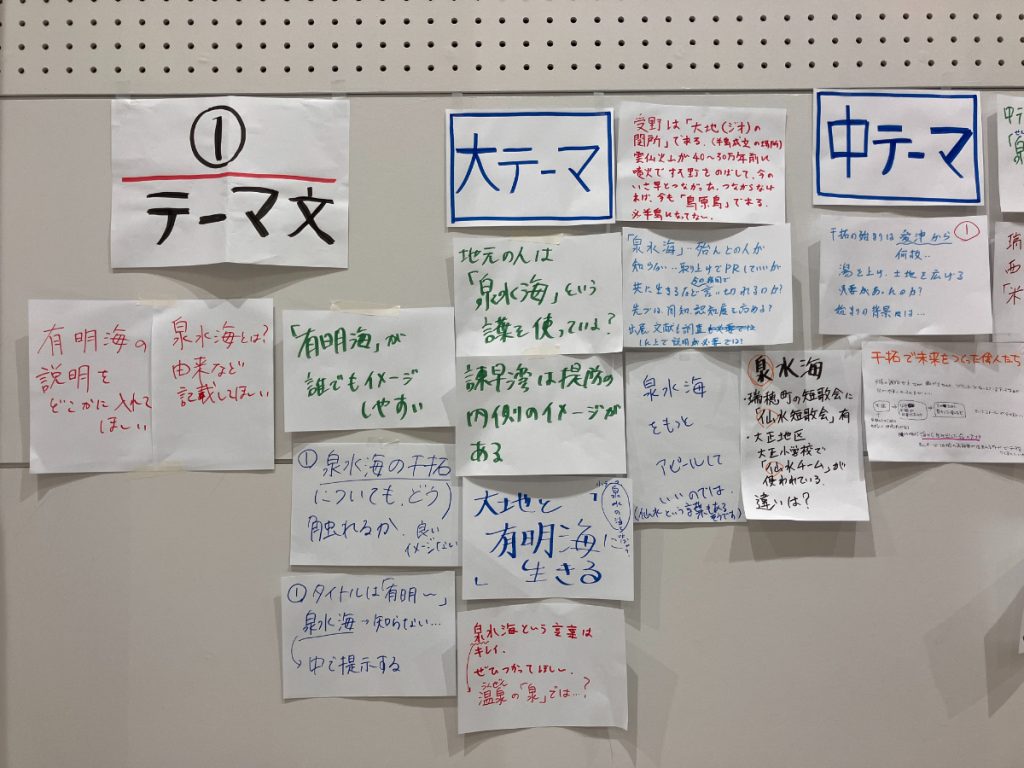 ①
テーマ文
有明海の
説明を
どこかに入れて
ほしい
泉水海とは?
由来など
記載してほしい
「有明海」が
誰でもイメージ
しやすい
① 泉水海の干拓
についても、どう
触れるか
良い
イメージない
① タイトルは「有明〜」
泉水海→知らない…
中で提示する
大テーマ
地元の人は
「泉水海」という
言葉を使っていますよ?
諫早湾は堤防の
内側のイメージが
ある
大地と
有明海に
生きる
泉水海という言葉は
キレイ.
ぜひつかってほしい
温泉の「泉」では…?
愛野は「大地(ジオ)の
関所」である.
雲仙火山が40〜50万年前に
噴火ですそ野をのばして、今の
いさ早とつながった。つながらなけ
れば、今も「島原島」である.
半島になってない.
「泉水海」…殆んどの人が
知らない…取り上げてPRしていいが
共に生きるなど言い切れるのか?
先づは周知、認知度を高める?
出展、文献を調査
した上で説明が必要では?
泉水海
をもっと
アピールして
いいのでは.
(仙水という言葉もある
ようです)
中テーマ
干拓の始まりは愛津から ①
何故..
潟を上げ、土地を広げる
必要があったのか?
始まりの背景は…
泉水海
・瑞穂町の短歌会に
「仙水短歌会」有
・大正地区
大正小学校で
「仙水ホーム」が
使われている.
違いは?
干拓で未来をつくった偉人たち